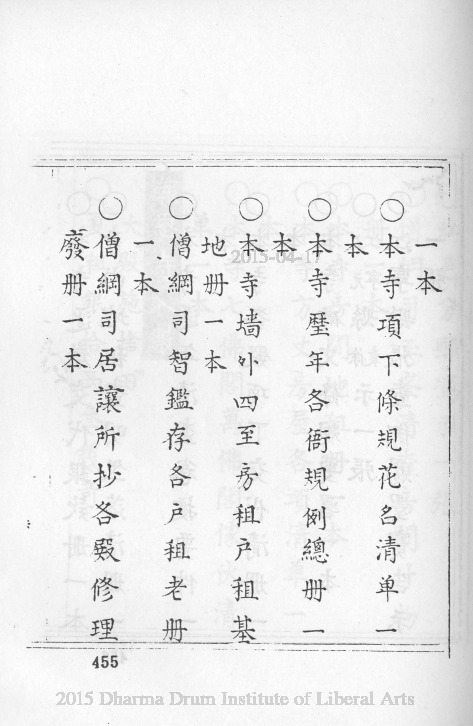 一本
○本寺項下條規花名清单一
本
○本寺歷年各衙規例總册一
本
○本寺墻外四至房租户租基
地册一本
○僧綱司智鑑存各户租老册
一本
○僧綱司居讓所抄各殿修理
廢册一本
455
2015-04-17
2015 Dharma Drum Institute of Liberal Arts